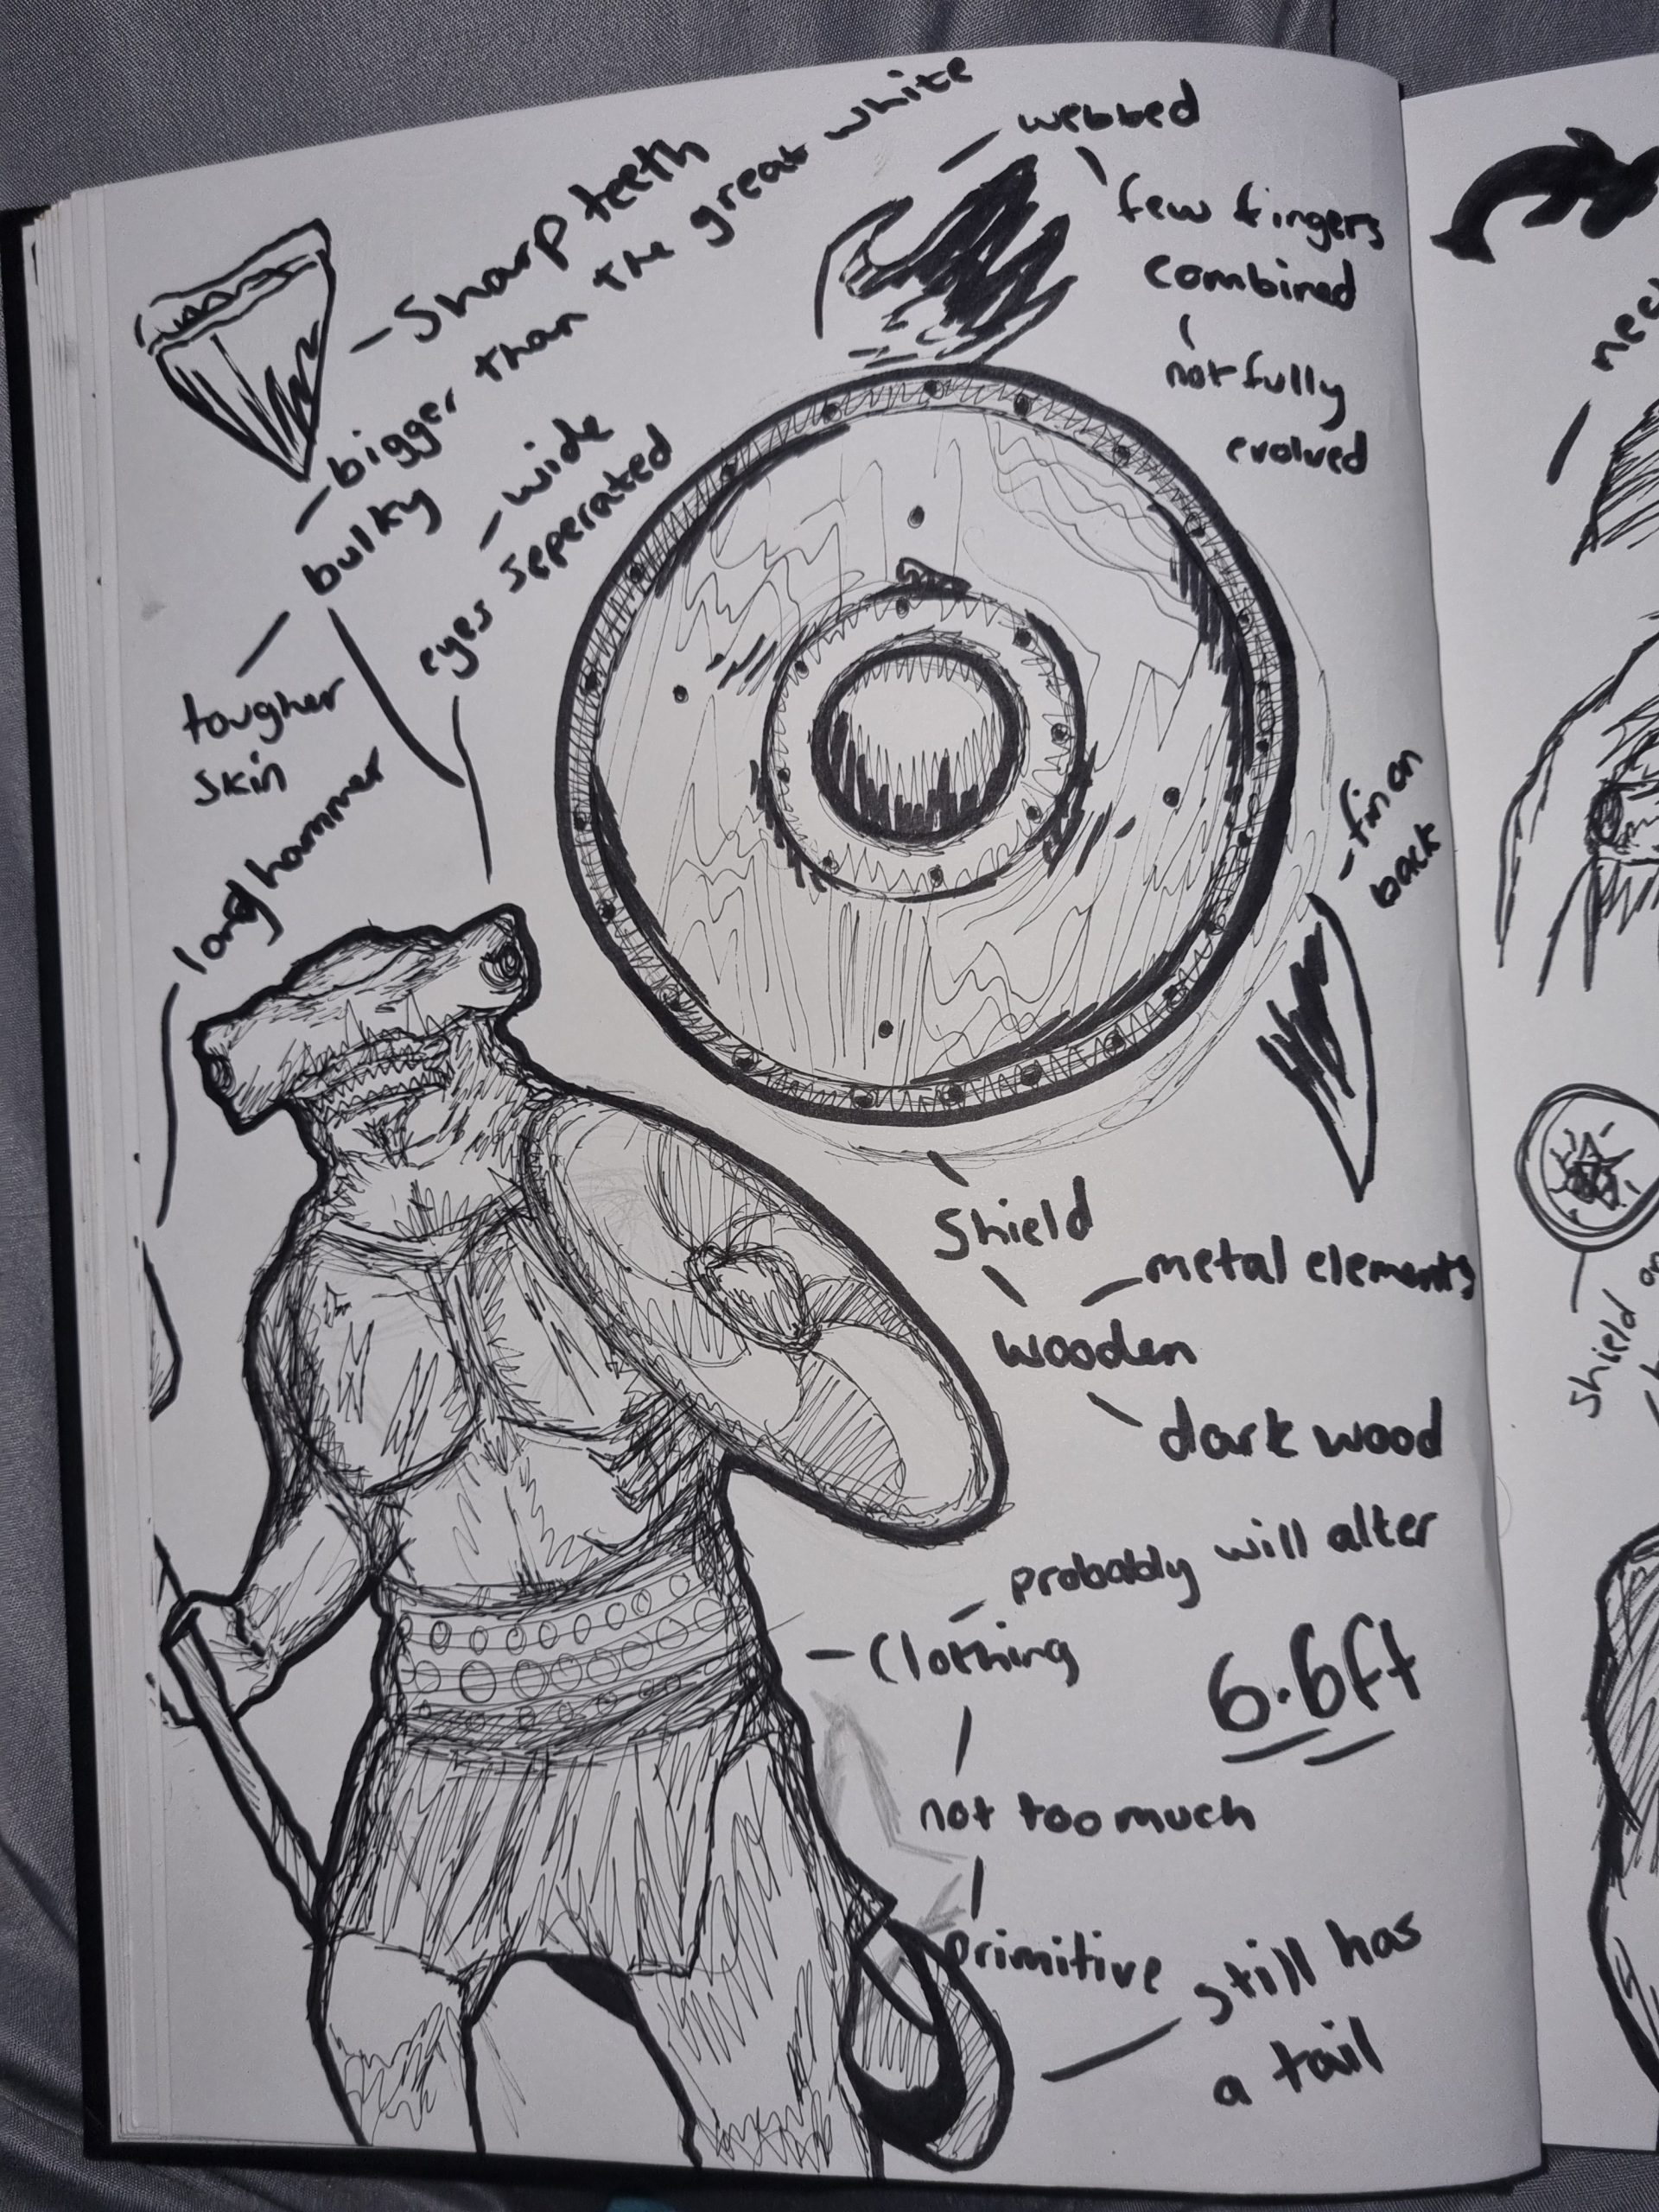 - Sharp teeth
- bigger than the great white
bulky
tougher
skin
- wide
eyes seperated
long hammer
- webbed
few fingers
combined
not fully
evolved
- fin on
back
Shield
- metal elements
wooden
dark wood
- probably will alter
- Clothing
6.6ft
not too much
primitive
still has
a tail
Shield